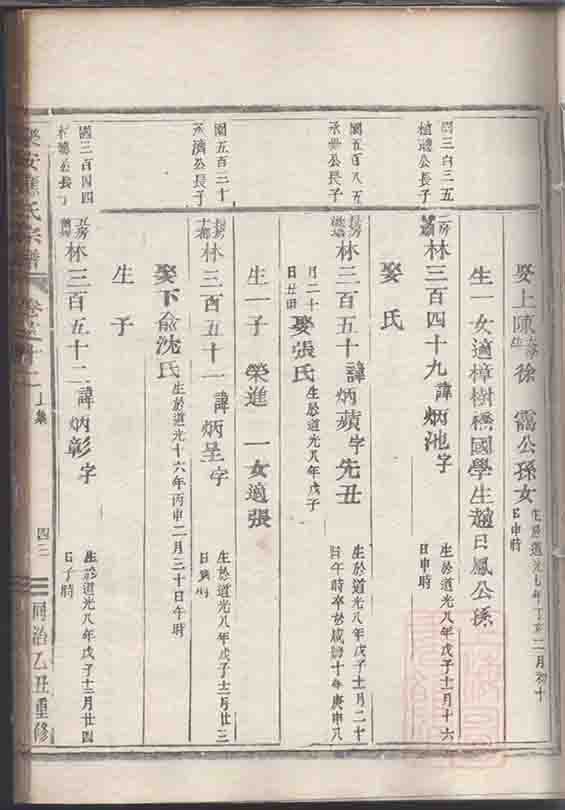 娶上陳 徐 靄公孫女 生於道光七年丁亥二月初十日申時
生一女適樟樹橋國學生趙日鳳公孫
國三百三五
植聰公長子
二房 林三百四十九諱炳池字 生於道光八年戊子十一月十六日申時
娶氏
國五百八五
公長子
長房 林三百五十諱炳蘋字先丑 生於道光八年戊子十一月二十日午時卒於咸豐十年庚申八
月二十日 娶張氏 生於道光八年戊子
生一子 榮進 一女適張
國五百三十
承濟公長子
林三百五十一諱炳呈字 生於道光八年戊子十二月廿三日 時
娶下俞沈氏 生於道光十六年丙申二月三十日午時
生子
國三百四四
公長子
林三百五十二諱炳彰字 生於道光八年戊子十二月廿四日子時
樂安 氏宗譜 卷之十二 上集 四三 同治乙丑重修